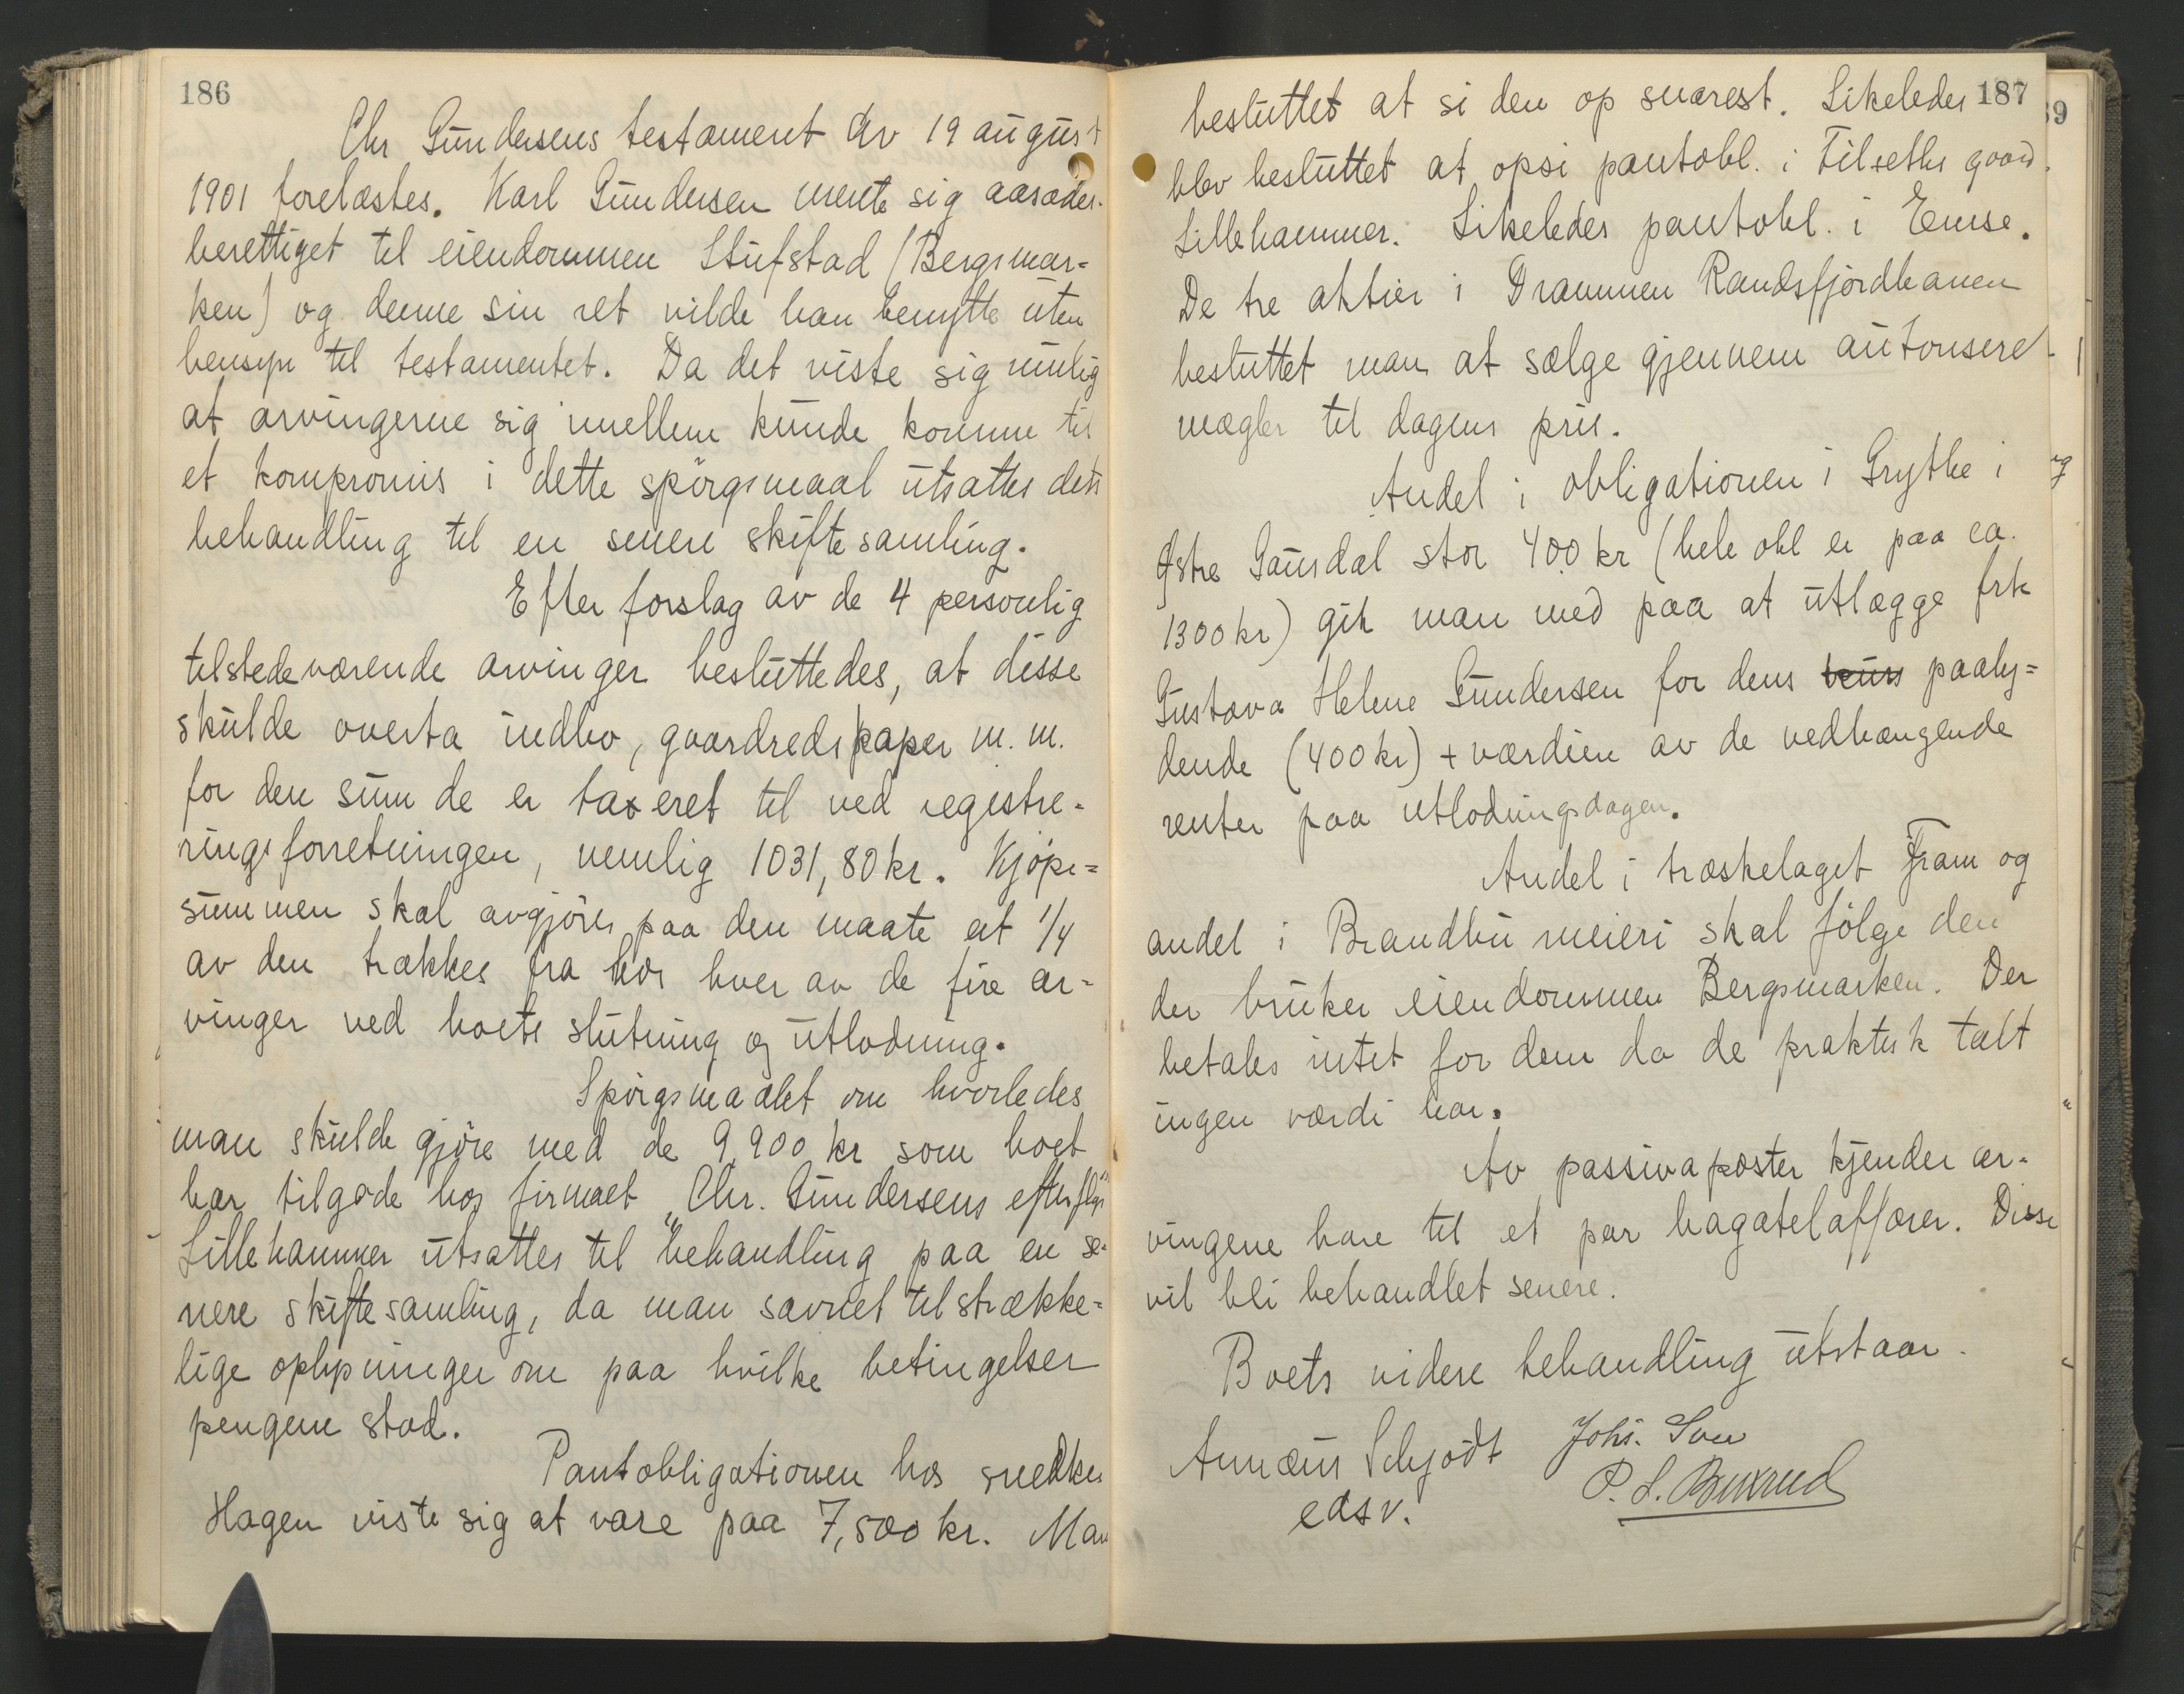 186
Chr Gundersens testament av 19 august
1901 forelæstes. Karl Gundersen mente sig aasædes-
berettiget til eiendommen Stufstad (Bergsmar=
ken) og denne sin ret vilde han benytte uten
hensyn til testamentet. Da det viste sig mulig
at arvingerne sig imellem kunde komme til
et kompromis i dette spörgsmaal utsattes dets
behandling til en senere skiftesamling.
Efter forslag av de 4 personlig
tilstedeværende arvinger besluttedes, at disse
skulde overta indbo, gaardredskaper m. m.
for den sum de er taxeret til ved registre-
ringsforretningen, nemlig 1031,80 kr. Kjöpe=
summen skal avgjöres paa den maate at 1/4
av den trækkes fra hos hver av de fire ar-
vinger ved boets slutning og utlodning.
Spörgsmaalet om hvorledes
man skulde gjöre med de 9,900 kr som boet
har tilgode hos firmaet "Chr. Gundersens efterflgr"
Lillehammer utsattes til behandling paa en se-
nere skiftesamling, da man savnet tilstrække=
lige oplysninger om paa hvilke betingelser
pengene stod.
Pantobligationen hos snedker
Hagen viste sig at være paa 7,500 kr. Man
187
besluttet at si den op snarest. Likeledes
blev besluttet at opsi pantobl. i Tilseths gaard.
Lillehammer. Likeledes pantobl. i
De tre aktier i Drammen Randsfjordbanen
besluttet man at sælge gjennem autoriseret
mægler til dagens pris.
Andel i obligationen i Grythe i
Østre Gausdal stor 400 kr (hele obl er paa ca.
1300 kr) gik man med paa at utlægge frk
Gustava Helene Gundersen for dens kurs paaly=
dende (400 kr) + værdien av de vedhængende
renter paa utlodningsdagen.
Andel i træskelaget Fram og
andel i Brandbu meieri skal fölge den
der bruker eiendommen Bergsmarken. Der
betales intet for dem da de praktisk talt
ingen værdi har.
Av passivaposter kjender ar-
vingene bare til et par bagatelaffærer. Disse
vil bli behandlet senere.
Boets videre behandling utstaar.
Annæus Schjødt Johs.
edsv.